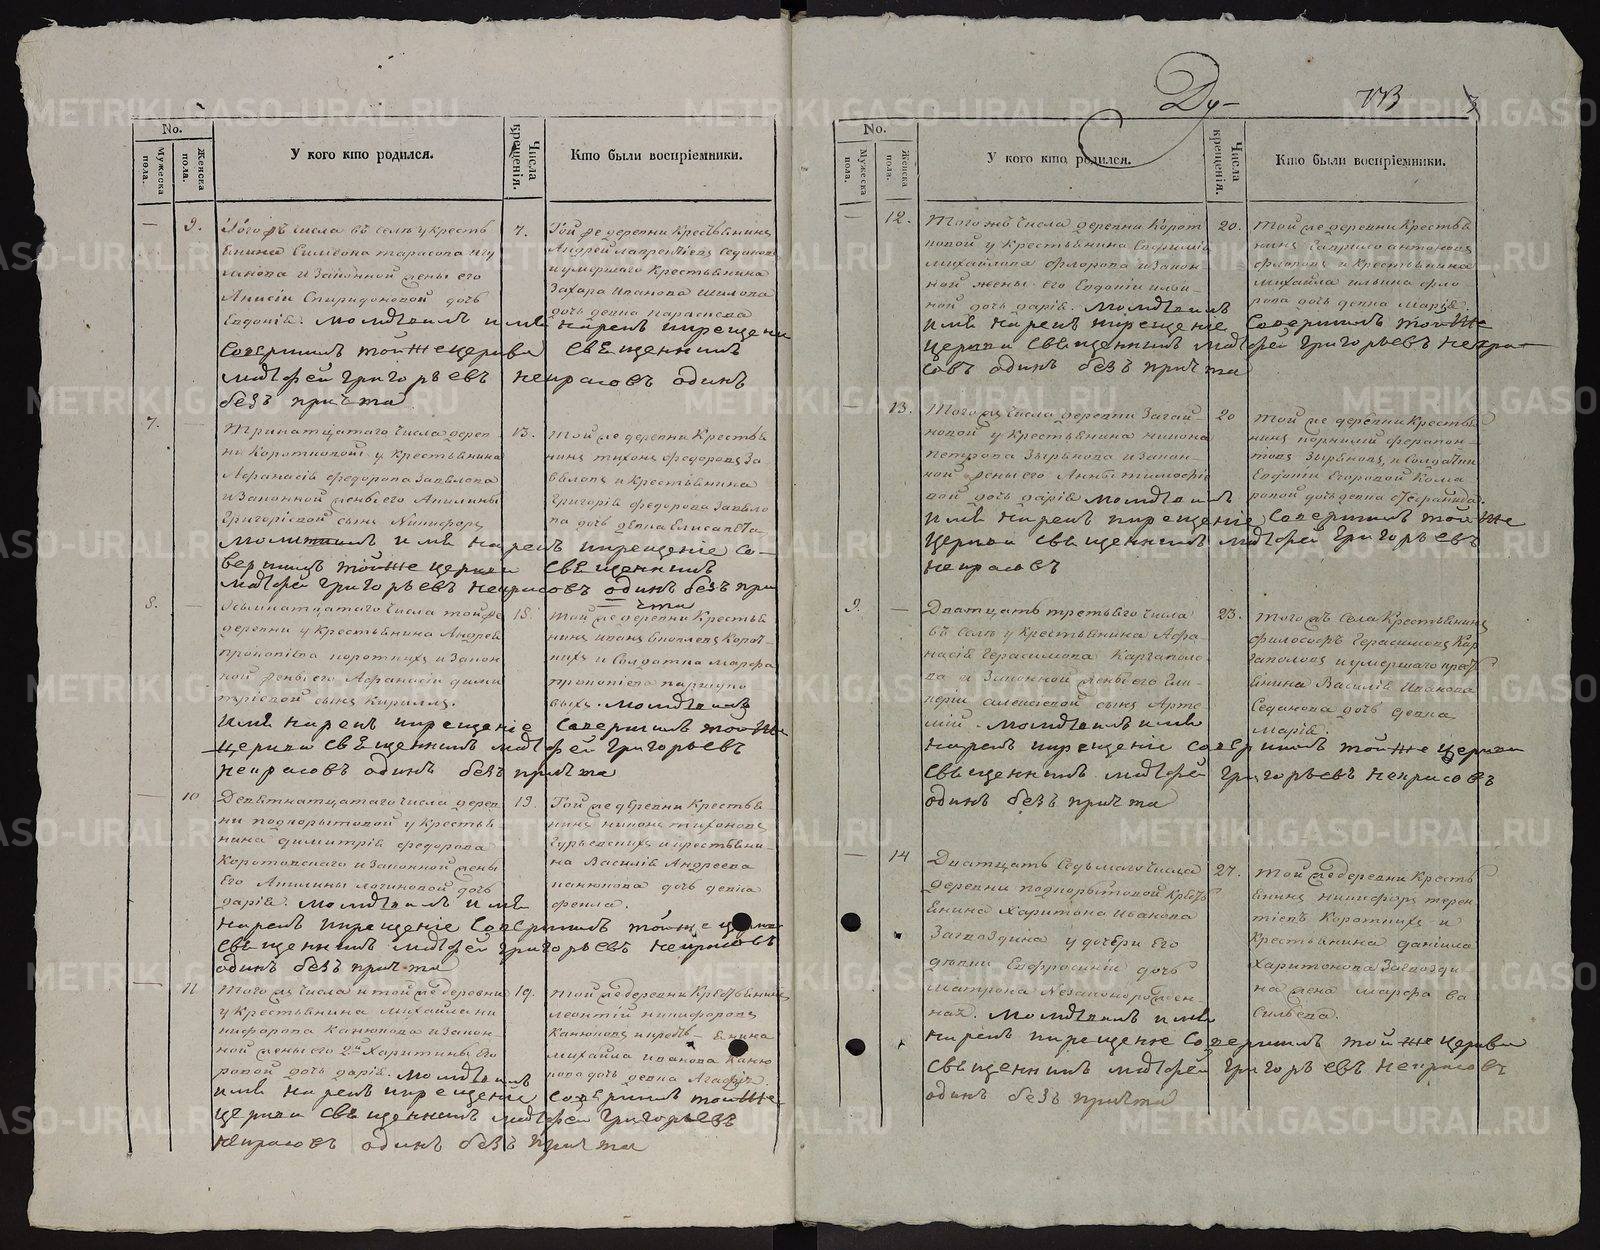 No.
Мужеска пола.
Женска пола.
У кого кто родился.
Числа крещенія.
Кто были воспріемники.
9.
Того жъ числа въ селѣ у кресть
янина Симеона Тарасова
и законной жены его
Анисіи Спиридоновой дочь
Евдокія. молитвилъ имя нарекъ и крещеніе
совершилъ той же церкви священникъ
Матфей Григорьевъ Некрасовъ одинъ
безъ причта
7.
Той же деревни крестьянинъ
Андрей Лаврентьевъ Седанов
и умершаго крестьянина
Захара Иванова Шилова
дочь девка Параскева
7.
Тринатцатаго числа дерев
ни Коротковой у крестьянина
Афанасія Федорова Завьялова
и законной жены его Акилины
Григоріевой сынъ Никифоръ
молитвилъ имя нарекъ и крещеніе со-
вершилъ той же церкви священникъ
Матфей Григорьевъ Некрасовъ одинъ безъ при
чта
13.
той же деревни крестья
нинъ Тихонъ Федоровъ За
вьяловъ и крестьянина
Григорія Федорова Завьяло
ва дочь девка Елисавета
8.
Осьмнатцатаго числа той же
деревни у крестьянина Андрея
Прокопіева Короткихъ и закон
ной жены его Афанасіи Дими
тріевой сынъ Кириллъ.
имя нарекъ и крещеніе совершилъ той же
церкви священникъ Матфей Григорьевъ
Некрасовъ одинъ безъ причта
18.
той же деревни крестья
нинъ Иванъ Корот
кихъ и солдатка Марфа
Прокопіева
выхъ. молитвилъ
10
Девятнатцатаго числа дерев
ни Подкорытовой у крестья
нина Димитрія Федорова
Коротовскаго и законной жены
его Акилины Логиновой дочь
Дарія. молитвилъ имя
нарекъ и крещеніе совершилъ той же церкви
священникъ Матфей Григорьевъ Некрасовъ
одинъ безъ причта
19.
Той же деревни крестья
нинъ Никонъ Тихоновъ
и крестьяни-
на Василія Андреева
Канюкова дочь девка
Фекла.
11
Того жъ числа и той же деревни
у крестьянина Михаила Ни
кифорова Канюкова и закон
ной жены его Харитины Его
ровой дочь Дарія. молитвилъ
имя нарекъ и крещеніе совершилъ той же
церкви священникъ Матфей Григорьевъ
Некрасовъ одинъ безъ причта
19.
той же деревни крестьянинъ
Леонтій Никифоровъ
Канюковъ и крестьянина
Михаила Иванова Каню
кова дочь девка Агафья.
Ду-
113
3
No.
Мужеска пола.
Женска пола.
У кого кто родился.
Числа крещенія.
Кто были воспріемники.
12.
Того жъ числа деревни Корот
ковой у крестьянина Евфимія
Михайлова Флорова и закон
ной жены его Евдокіи Ильи
ной дочь Дарія. молитвилъ
имя нарекъ и крещеніе совершилъ той же
церкви священникъ Матфей Григорьевъ Некра-
совъ одинъ безъ причта
20.
той же деревни крестья
нинъ Гаврило Антоновъ
Флоровъ и крестьянина
Михаила Ильина Фло
рова дочь девка Марія
13.
Того жъ числа деревни Загай
новой у крестьянина Никона
Петрова Зырянова и закон
ной жены его Анны Тимофіе
вой дочь Дарія молитвилъ
имя нарекъ и крещеніе совершилъ той же
церкви священникъ Матфей Григорьевъ
Некрасовъ
20
той же деревни крестья
нинъ Корнилій Ферапон-
товъ Зыряновъ, и солдатки
Евдокіи Егоровой Кома
ровой дочь девка Стефанида.
9.
Дватцать третьяго числа
въ селѣ у крестьянина Афа
насія Герасимова Каргаполо
ва и законной жены его Гли
керіи Алексіевой сынъ Арте
мій. молитвилъ имя
нарекъ и крещеніе совершилъ той же церкви
священникъ Матфей Григорьевъ Некрасовъ
одинъ безъ причта
23.
того жъ села крестьянинъ
Философъ Герасимовъ Кар
гаполовъ и умершаго кресть
янина Василія Иванова
Седанова дочь девка
Марія.
14
Дватцать седьмаго числа
деревни Подкорытовой кресть
янина Харитона Иванова
Загвоздина у дочери его
девки Евфросиніи дочь
Матрона незаконорожден-
ная. молитвилъ имя
нарекъ и крещеніе совершилъ той же церкви
священникъ Матфей Григорьевъ Некрасовъ
одинъ безъ причта
27.
той же деревни кресть
янинъ Никифоръ Терен
тіевъ Короткихъ и
крестьянина Даніила
Харитонова Загвозди
на жена Марфа Ва
сильева.
METRIKI.GASO-URAL.RU